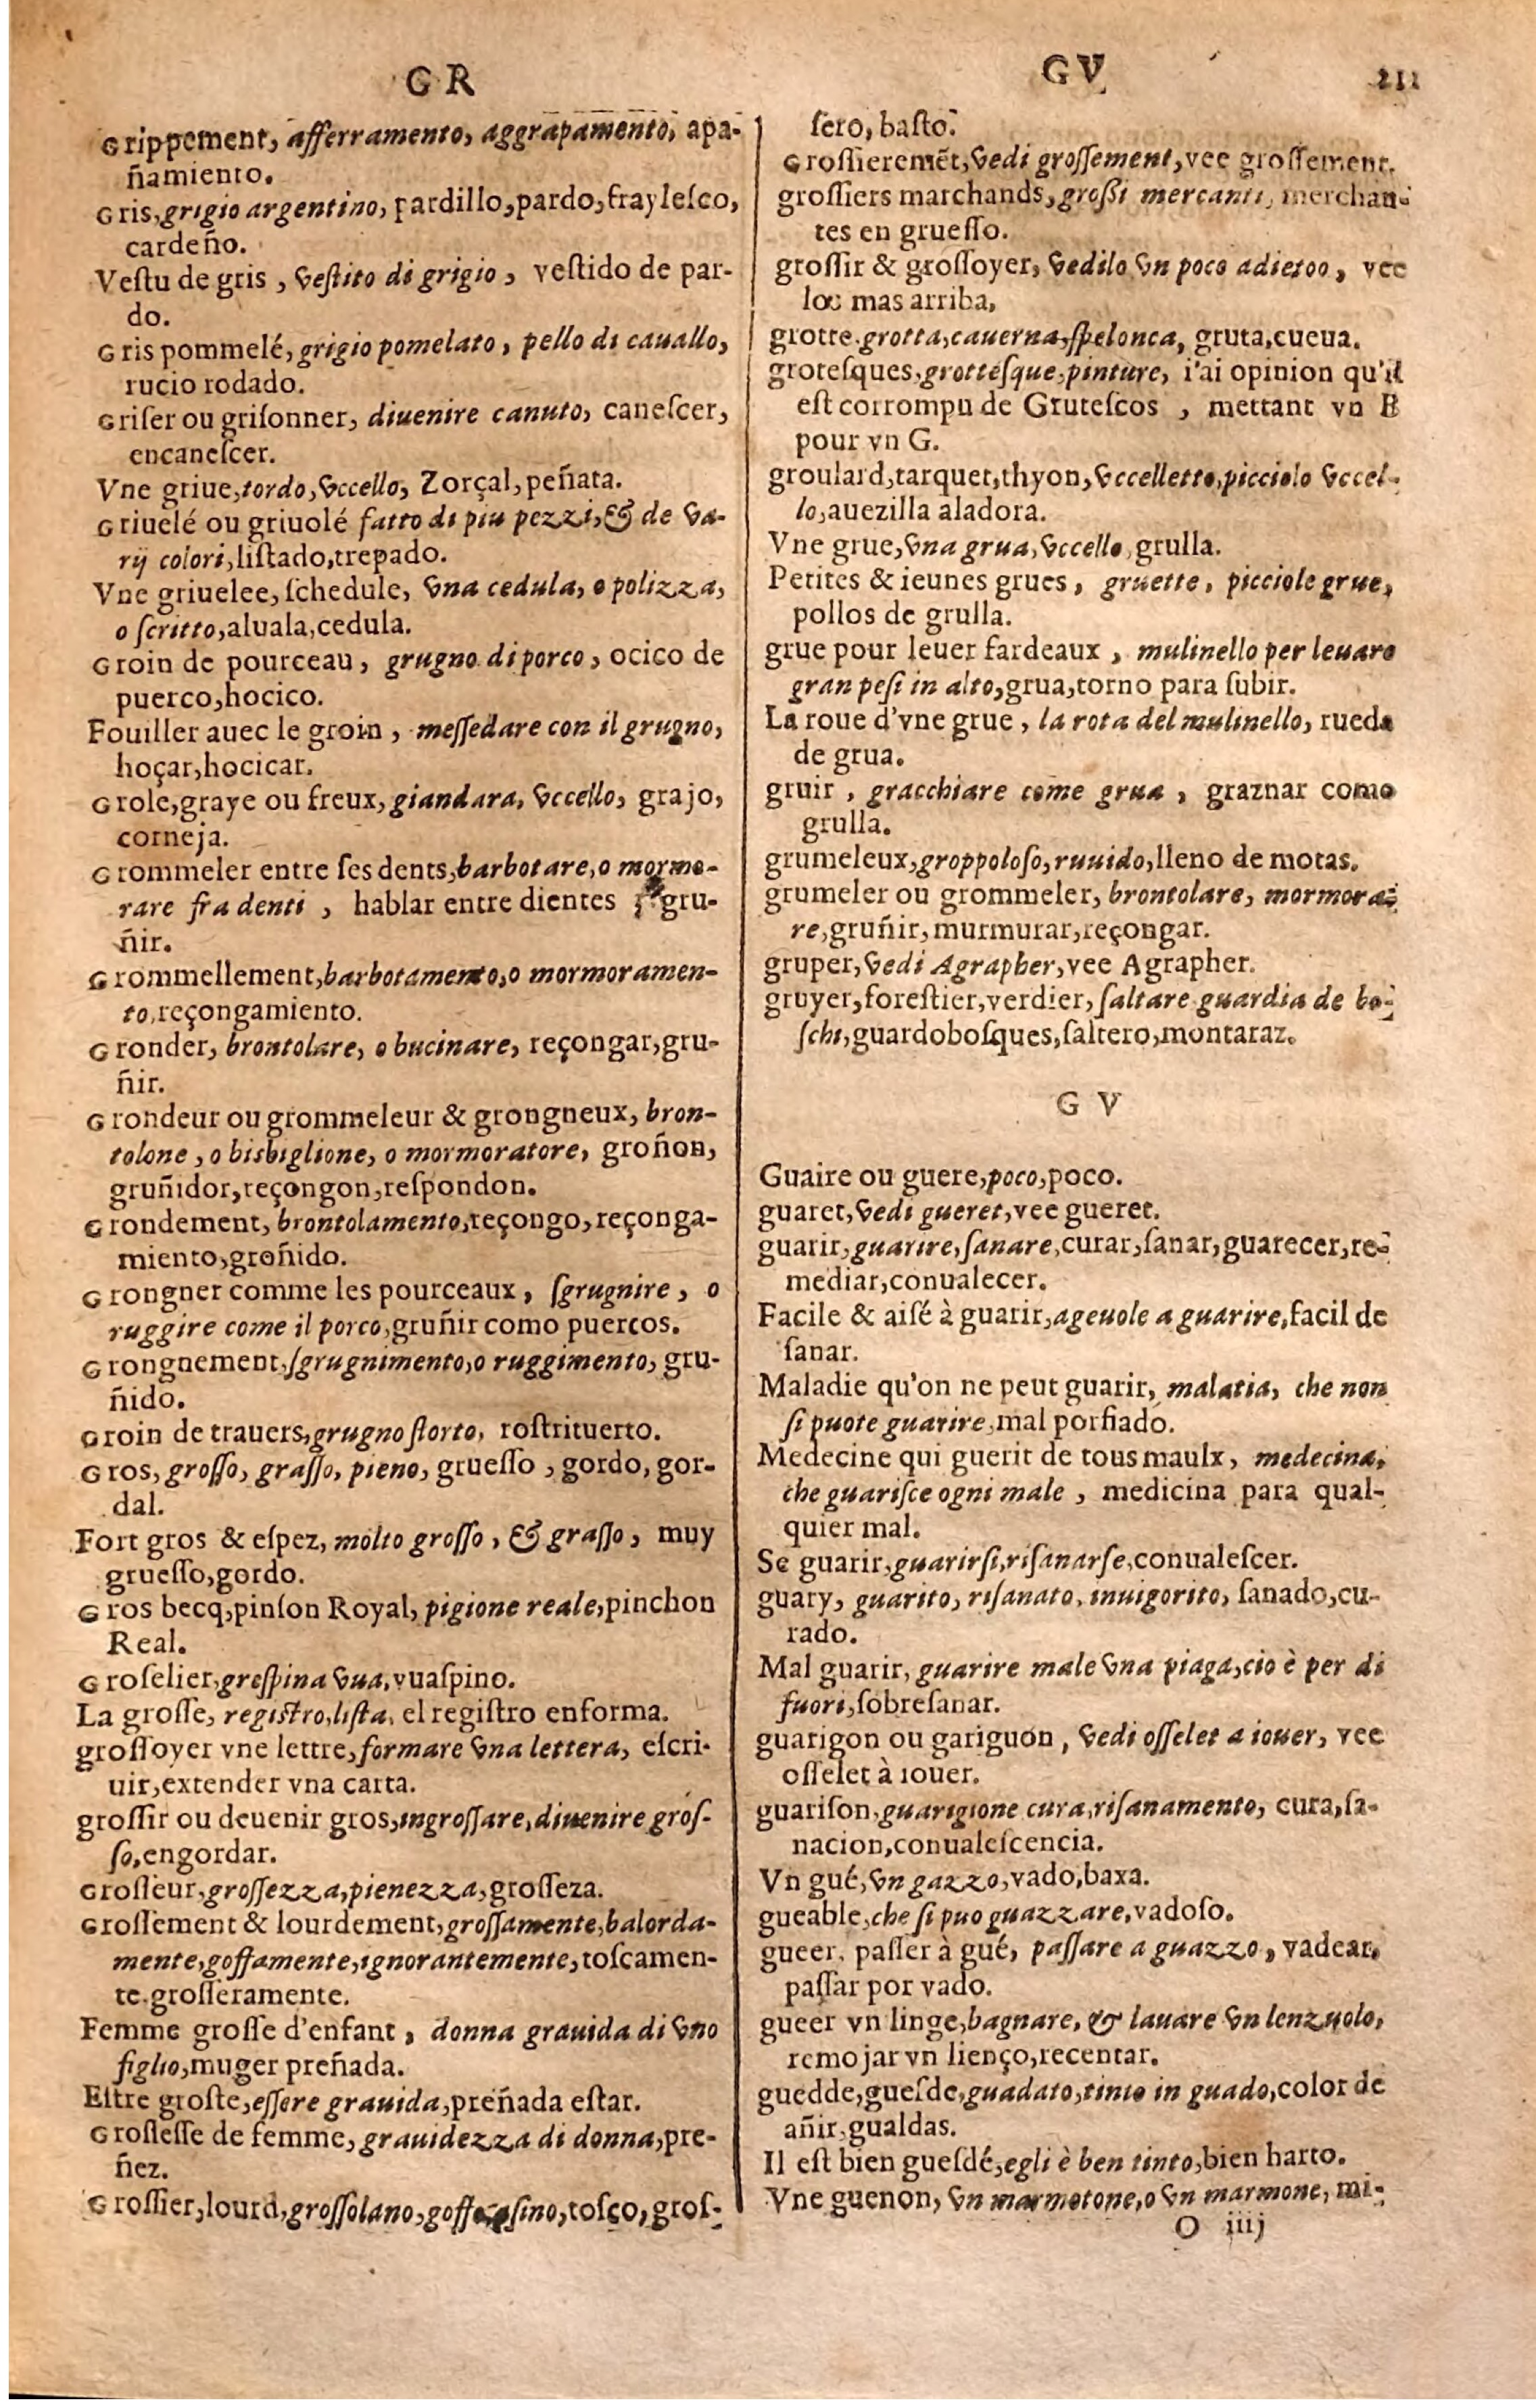 G R
Grippement, afferramento, aggrapamento, apa-
ñamiento.
Gris,grigio argentino, pardillo,pardo,frayleſco,
cardeño.
Veſtu de gris , veſtito di grigio , veſtido de par-
do.
Gris pommelé,grigio pomelato , pello di cauallo,
rucio rodado.
Griſer ou griſonner, diuenire canuto, caneſcer,
encaneſcer.
Vne griue,tordo,vccello, Zorçal,peñata.
Griuelé ou griuolé fatto di piu pezzi,& de va-
rij colori,liſtado,trepado.
Vne griuelee, ſchedule, vna cedula, o polizza,
o ſcritto,aluala,cedula.
Groin de pourceau , grugno di porco , ocico de
puerco,hocico.
Fouiller auec le groin , meſſedare con il grugno,
hoçar,hocicar.
Grole,graye ou freux,giandara, vccello, grajo,
corneja.
Grommeler entre ſes dents,barbotare,o mormo-
rare fra denti , hablar entre dientes , gru-
ñir.
Grommellement,barbotamento,o mormoramen-
to,reçongamiento.
Gronder, brontolare, o bucinare, reçongar,gru-
ñir.
Grondeur ou grommeleur & grongneux, bron-
tolone , o bisbiglione, o mormoratore, groñon,
gruñidor,reçongon,reſpondon.
Grondement, brontolamento,reçongo,reçonga-
miento,groñido.
Grongner comme les pourceaux , ſgrugnire , o
ruggire come il porco,gruñir como puercos.
Grongnement,ſgrugnimento,o ruggimento, gru-
ñido.
Groin de trauers,grugno ſtorto, roſtrituerto.
Gros, groſſo, graſſo, pieno, grueſſo , gordo, gor-
dal.
Fort gros & eſpez, molto groſſo , & graſſo , muy
grueſſo,gordo.
Gros becq,pinſon Royal, pigione reale,pinchon
Real.
Groſelier,greſpina vua,vuaſpino.
La groſſe, regiſtro,liſta, el regiſtro enforma.
groſſoyer vne lettre,formare vna lettera, eſcri-
uir,extender vna carta.
groſſir ou deuenir gros,ingroſſare,diuenire groſ-
ſo,engordar.
Groſſeur,groſſezza,pienezza,groſſeza.
Groſſement & lourdement,groſſamente,balorda-
mente,goffamente,ignorantemente,toſcamen-
te.groſſeramente.
Femme groſſe d'enfant , donna grauida di vno
figlio,muger preñada.
Eſtre groſſe,eſſere grauida,preñada eſtar.
Groſſeſſe de femme, grauidezza di donna,pre-
ñez.
Groſſier,lourd,groſſolano,goffo,aſino,toſco,groſ-
G V 211
ſero, baſto.
Groſſieremēt,vedi groſſement,vee groſſement.
groſſiers marchands,groſſi mercanti, merchan-
tes en grueſſo.
groſſir & groſſoyer, vedilo vn poco adietoo , vee
los mas arriba,
grotte.grotta,cauerna,ſpelonca, gruta,cueua.
groteſques,grotteſque,pinture, i'ai opinion qu'il
eſt corrompu de Gruteſcos , mettant vn B
pour vn G.
groulard,tarquet,thyon,vccelletto,picciolo vccel-
lo,auezilla aladora.
Vne grue,vna grua,vccello,grulla.
Petites & ieunes grues , gruette , picciole grue,
pollos de grulla.
grue pour leuer fardeaux , mulinello per leuare
gran peſi in alto,grua,torno para ſubir.
La roue d'vne grue , la rota del mulinello, rueda
de grua.
gruir , gracchiare come grua , graznar como
grulla.
grumeleux,groppoloſo,ruuido,lleno de motas.
grumeler ou grommeler, brontolare, mormora-
re,gruñir,murmurar,reçongar.
gruper,vedi Agrapher,vee Agrapher.
gruyer,foreſtier,verdier,ſaltare guardia de bo-
ſchi,guardoboſques,ſaltero,montaraz.
G V
Guaire ou guere,poco,poco.
guaret,vedi gueret,vee gueret.
guarir,guarire,ſanare,curar,ſanar,guarecer,re-
mediar,conualecer.
Facile & aiſé à guarir,ageuole a guarire,facil de
ſanar.
Maladie qu'on ne peut guarir, malatia, che non
ſi puote guarire,mal porfiado.
Medecine qui guerit de tous maulx , medecina,
che guariſce ogni male , medicina para qual-
quier mal.
Se guarir,guarirſi,riſanarſe,conualeſcer.
guary, guarito, riſanato, inuigorito, ſanado,cu-
rado.
Mal guarir, guarire male vna piaga,cio è per di
fuori,ſobreſanar.
guarigon ou gariguon , vedi oſſelet a iouer, vee
oſſelet à iouer.
guariſon,guarigione cura,riſanamento, cura,ſa-
nacion,conualeſcencia.
Vn gué,vn gazzo,vado,baxa.
gueable,che ſi puo guazzare,vadoſo.
gueer, paſſer à gué, paſſare a guazzo , vadear,
paſſar por vado.
gueer vn linge,bagnare, & lauare vn lenzuolo,
remojar vn lienço,recentar.
guedde,gueſde,guadato,tinto in guado,color de
añir,gualdas.
Il eſt bien gueſdé,egli è ben tinto,bien harto.
Vne guenon, vn marmotone,o vn marmone, mi-
O iiij